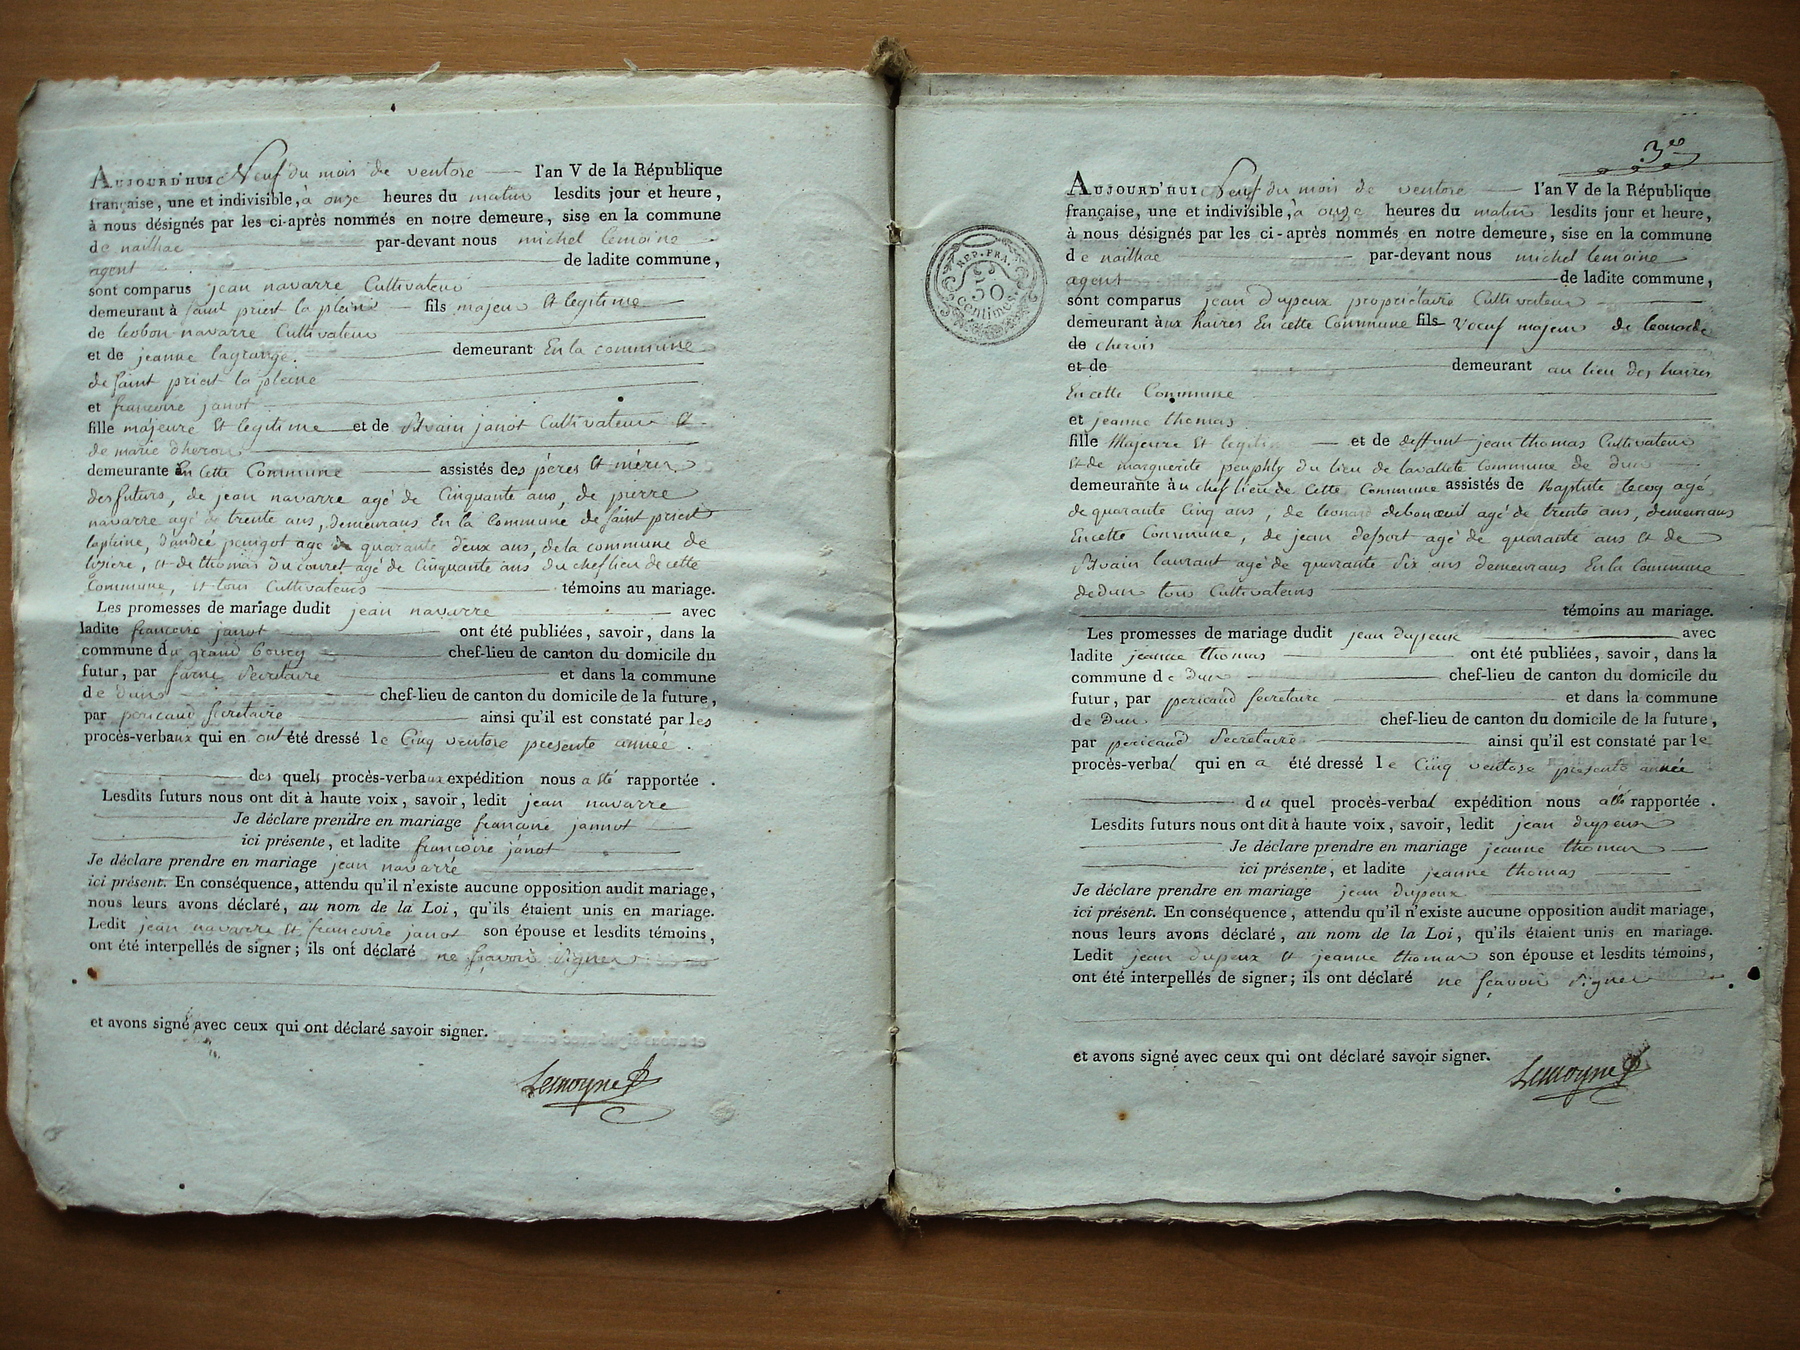 AUJOURD'HUI Neuf du mois de ventose l'an V de la République
française, une et indivisible, à onze heures du matin lesdits jour et heure,
à nous désignés par les ci-après nommés en notre demeure, sise en la commune
de naillac par-devant nous michel lemoine
agent de ladite commune,
sont comparus jean navarre Cultivateur
demeurant à saint priest la pleine fils majeur et legitime
de leobon navarre Cultivateur
et de jeanne lagrange. demeurant En la commune
de saint priest la pleine
et francoise janot
fille majeure Et legitime et de Silvain janot Cultivateur Et
de marie dheron
demeurante En Cette Commune assistés des pères Et mères
des futurs, de jean navarre agé de Cinquante ans, de pierre
navarre agé de trente ans, demeurans En la Commune de saint priest
laplaine, d'andré agé de quarante deux ans, de la commune de
lizière, et de thomas ducouret agé de Cinquante ans du chef lieu de cette
Commune, et tous Cultivateurs témoins au mariage.
Les promesses de mariage dudit jean navarre avec
ladite francoise janot ont été publiées, savoir, dans la
commune du grand bourg chef-lieu de canton du domicile du
futur, par Secretaire et dans la commune
de dun chef-lieu de canton du domicile de la future,
par pericaud secretaire ainsi qu'il est constaté par les
procès-verbaux qui en ont été dressé le Cinq ventose presente année.
des quels procès-verbaux expédition nous a été rapportée.
Lesdits futurs nous ont dit à haute voix, savoir, ledit jean navarre
Je déclare prendre en mariage francoise jannot
ici présente, et ladite francoise janot
Je déclare prendre en mariage jean navarre
ici présent. En conséquence, attendu qu'il n'existe aucune opposition audit mariage,
nous leurs avons déclaré, au nom de la Loi, qu'ils étaient unis en mariage.
Ledit jean navarre Et francoise janot son épouse et lesdits témoins,
ont été interpellés de signer; ils ont déclaré ne sçavoir signer
et avons signé avec ceux qui ont déclaré savoir signer.
Lemoyne
3e
REP. FRA.
50
centimes.
AUJOURD'HUI Neuf du mois de ventose l'an V de la République
française, une et indivisible, à onze heures du matin lesdits jour et heure,
à nous désignés par les ci-après nommés en notre demeure, sise en la commune
de naillac par-devant nous michel lemoine
agent de ladite commune,
sont comparus jean dupeux propriétaire Cultivateur
demeurant aux haires En cette Commune fils veuf majeur de leonarde
de chervis
et de demeurant au lieu des haires
En cette Commune
et jeanne thomas
fille Majeure Et legitime et de deffunt jean thomas Cultivateur
Et de marguerite du lieu de lavallete Commune de dun
demeurante au chef lieu de Cette Commune assistés de Baptiste lecoq agé
de quarante Cinq ans, de leonard debonœuil agé de trente ans, demeurans
En cette Commune, de jean deport agé de quarante ans Et de
Silvain laurant agé de quarante Six ans demeurans En la Commune
de dun tous Cultivateurs
témoins au mariage.
Les promesses de mariage dudit jean dupeux avec
ladite jeanne thomas ont été publiées, savoir, dans la
commune de dun chef-lieu de canton du domicile du
futur, par pericaud secretaire et dans la commune
de dun chef-lieu de canton du domicile de la future,
par pericaud Secretaire ainsi qu'il est constaté par le
procès-verbal qui en a été dressé le Cinq ventose presente année
du quel procès-verbal expédition nous a été rapportée.
Lesdits futurs nous ont dit à haute voix, savoir, ledit jean dupeux
Je déclare prendre en mariage jeanne thomas
ici présente, et ladite jeanne thomas
Je déclare prendre en mariage jean dupeux
ici présent. En conséquence, attendu qu'il n'existe aucune opposition audit mariage,
nous leurs avons déclaré, au nom de la Loi, qu'ils étaient unis en mariage.
Ledit jean dupeux Et jeanne thomas son épouse et lesdits témoins,
ont été interpellés de signer; ils ont déclaré ne sçavoir signer
et avons signé avec ceux qui ont déclaré savoir signer.
Lemoyne